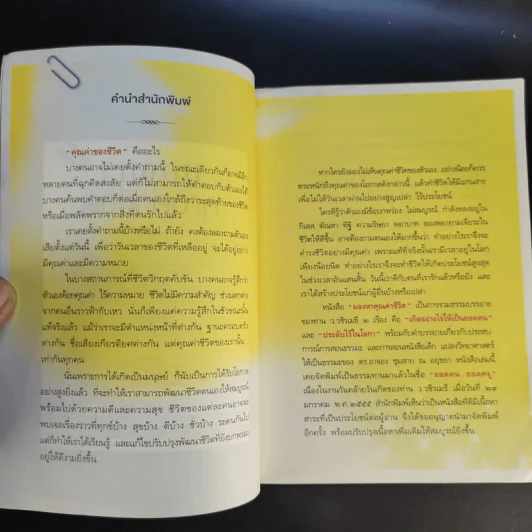 คำนำสำนักพิมพ์
"คุณค่าของชีวิต" คืออะไร
บางคนอาจไม่เคยตั้งคำถามนี้ ในขณะเดียวกันก็อาจมีอีก
หลายคนที่ฉุกคิดสงสัย แต่ก็ไม่สามารถให้คำตอบกับตัวเองได้
บางคนค้นพบคำตอบก็ต่อเมื่อตนเองใกล้ถึงวาระสุดท้ายของชีวิต
หรือเมื่อพลัดพรากจากสิ่งที่ตนรักไปแล้ว
เราเคยตั้งคำถามนี้บ้างหรือไม่ ถ้ายัง คงต้องลองถามตนเอง
เสียตั้งแต่วันนี้ เพื่อว่าวันเวลาของชีวิตที่เหลืออยู่ จะได้อยู่อย่าง
มีคุณค่าและมีความหมาย
ในบางสถานการณ์ที่ชีวิตวิกฤตคับขัน บางคนอาจรู้สึกว่า
ตัวเองด้อยคุณค่า ไร้ความหมาย ชีวิตไม่มีความสำคัญ ช่างแตกต่าง
จากคนอื่นราวฟ้ากับเหว นั่นก็เพียงแค่ความรู้สึกในช่วงขณะนั้น
แท้จริงแล้ว แม้ว่าเราจะมีตำแหน่งหน้าที่ต่างกัน ฐานะครอบครัว
ต่างกัน ชื่อเสียงเกียรติยศต่างกัน แต่คุณค่าชีวิตของเรานั้น
เท่ากันทุกคน
นั่นเพราะการได้เกิดเป็นมนุษย์ ก็นับเป็นการได้รับโอกาส
อย่างสูงยิ่งแล้ว ที่จะทำให้เราสามารถพัฒนาชีวิตตนเองให้สมบูรณ์
พร้อมไปด้วยความดีและความสุข ชีวิตของแต่ละคนอาจจะ
พบเจอเรื่องราวที่ทุกข์บ้าง สุขบ้าง ดีบ้าง ชั่วบ้าง ระคนกันไป
แต่ก็ทำให้เราได้เรียนรู้ และแก้ไขปรับปรุงพัฒนาชีวิตที่ยังบกพร่อง
อยู่ให้ดีงามยิ่งขึ้น
หากใครยังมองไม่เห็นคุณค่าชีวิตของตัวเอง อย่างน้อยก็ควร
ตระหนักถึงคุณค่าของโอกาสดังกล่าวนี้ แล้วทำชีวิตให้มีแก่นสาร
เพื่อไม่ให้วันเวลาผ่านไปอย่างสูญเปล่า ไร้ประโยชน์
ใครที่รู้ว่าตัวเองมีข้อบกพร่อง ไม่สมบูรณ์ กำลังหลงอยู่ใน
กิเลส ตัณหา ทิฐิ ความริษยา พยาบาท ลองพยายามเจียระไน
ชีวิตให้ดีขึ้น อาจต้องถามตนเองให้มากขึ้นว่า ทำอย่างไรเราจึงจะ
ดำรงชีวิตอย่างมีคุณค่า เพราะแท้ที่จริงนั้นเรามีเวลาอยู่ในโลก
เพียงน้อยนิด ทำอย่างไรเราจึงจะทำชีวิตให้เกิดประโยชน์สูงสุด
ในช่วงเวลาอันแสนสั้น วันนี้เราดีกับคนที่เรารักแล้วหรือยัง และ
เราได้สร้างประโยชน์แก่ผู้อื่นบ้างหรือเปล่า
หนังสือ "มองหาคุณค่าชีวิต" เป็นการรวมธรรมบรรยาย
ของท่าน ว.วชิรเมธี ๒ เรื่อง คือ "เกิดอย่างไรให้เป็นยอดคน"
และ "ประดับไว้ในโลกา" พร้อมกับคำบรรยายเกี่ยวกับประสบ-
การณ์การสอนธรรมะ และการสอนหนังสือเด็ก แปลงวิทยาศาสตร์
ให้เป็นธรรมะของ ดร.อาจอง ชุมสาย ณ อยุธยา หนังสือเล่มนี้
เคยจัดพิมพ์เป็นธรรมทานมาแล้วในชื่อ "ยอดคน ยอดครู"
เนื่องในงานวันคล้ายวันเกิดของท่าน ว.วชิรเมธี เมื่อวันที่ ๒๙
มกราคม พ.ศ.๒๕๕๕ สำนักพิมพ์เห็นว่าเป็นหนังสือที่ดีมีเนื้อหา
สาระที่เป็นประโยชน์ต่อผู้อ่าน จึงได้ขออนุญาตนำมาจัดพิมพ์
อีกครั้ง พร้อมปรับปรุงเนื้อหาเพิ่มเติมให้สมบูรณ์ยิ่งขึ้น